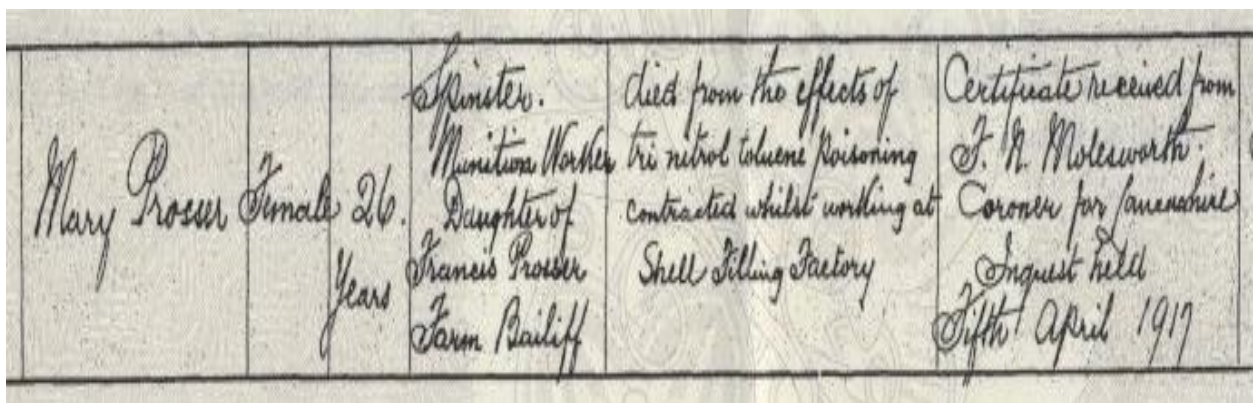 Mary Prosser
Female
26.
Years
Spinster.
Munition Worker
Daughter of
Francis Prosser
Farm Bailiff
died from the effects of
tri nitrol toluene poisoning
contracted whilst working at
Shell Filling Factory
Certificate received from
F. N. Molesworth.
Coroner for Lancashire
Inquest held
Fifth April 1917